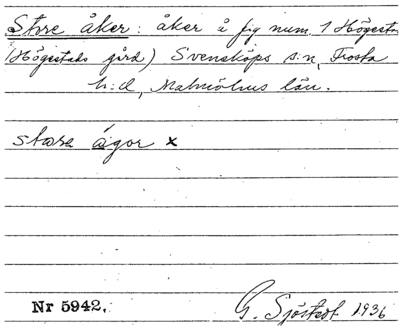 Store åker: åker å fig num. 1 Högesta
(Högestads gård) Svensköps s:n, Frosta
h:d, Malmöhus län.
stora ågor x
Nr 5942. G. Sjöstedt 1936